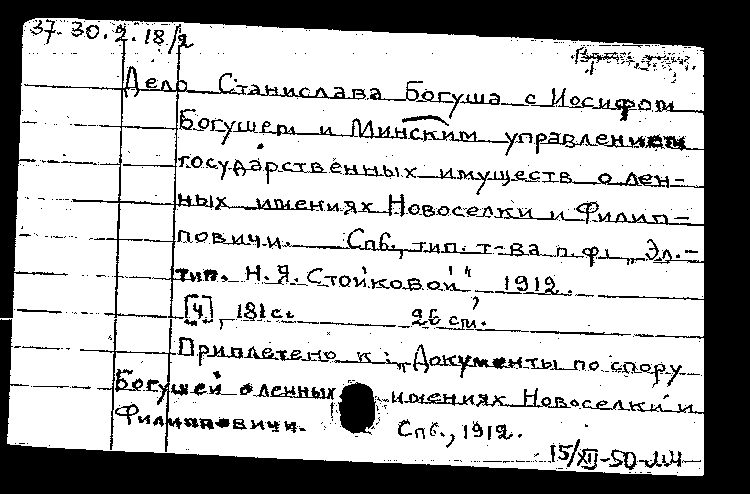 37-30.2.18/2
Дело Станислава Богуша с Иосифом
Богушем и Минским управлением
государственных имуществ о лен-
ных имениях Новоселки и Филип-
повичи. Спб., тип. т-ва п.ф. „Эл.-
тип. Н.Я. Стойковой" 1912.
[4], 181 с. 26 см.
Приплетено к: „Документы по спору
Богушей о ленных имениях Новоселки и
Филипповичи. Спб., 1912.
15/XII-50-МЧ